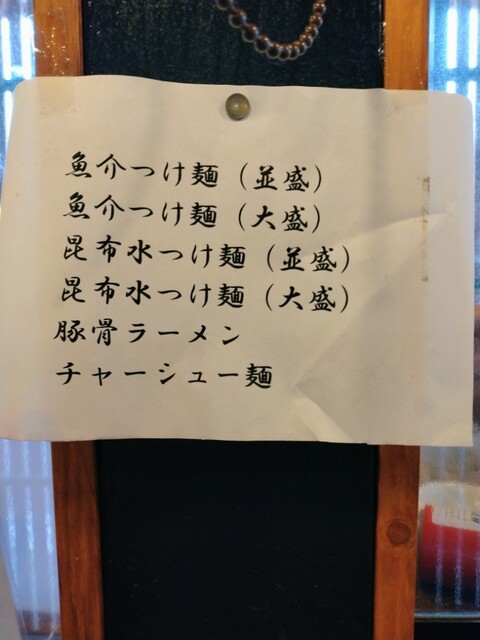 魚介つけ麺（並盛）
魚介つけ麺（大盛）
昆布水つけ麺（並盛）
昆布水つけ麺（大盛）
豚骨ラーメン
チャーシュー麺